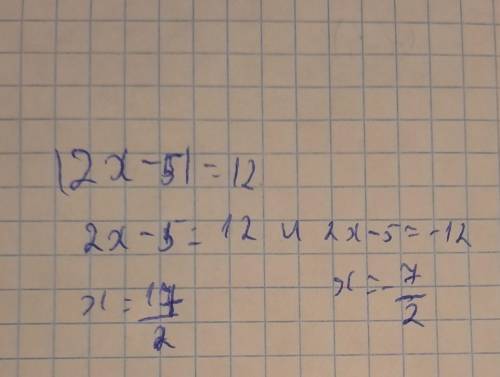 |2x-5|=12
2x-5=12 и 2x-5=-12
x=17/2 x=-7/2